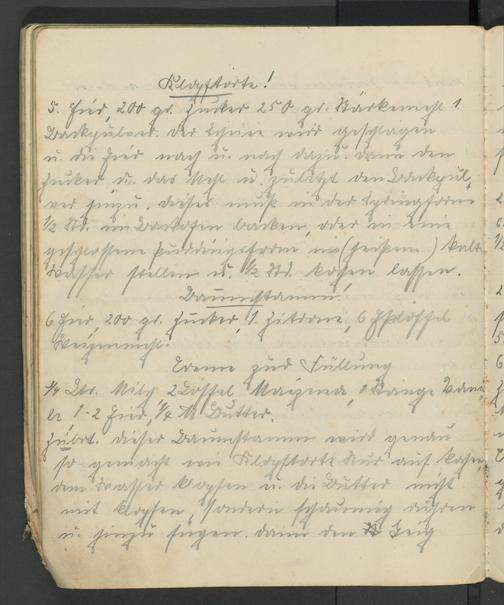 Klopftorte!
5. Eier, 200 gr. Zucker 250 gr. Stärkemehl 1
Backpulver. Der Schnee wird geschlagen
u. die Eier nach u. nach dazu. Dann den
Zucker u. das Mehl u. zuletzt den Backpul„
ver hinzu. Dieses muß in der Springform
½ Std. im Backofen backen, oder in eine
geschlossene Puddingsform in (heißem) kalt
Wasser stellen u. ½ Std. kochen lassen.
Baumstamm!
6 Eier, 200 gr. Zucker 1. Zitrone, 6 Eßlöffel
Weizenmehl.
Creme zur Füllung
¾ Ltr. Milch, 2 Löffel Maizena, 1 Stange Vanil
le 1-2 Eier, ¼ Butter.
Zubrt. Dieser Baumstamm wird genau
so gemacht wie Klopftorte Nur auf kochen„
dem Wasser klopfen u. die Butter nicht
mit klopfen, sondern schaumig rühren
u. hinzu fügen. Dann den Teig